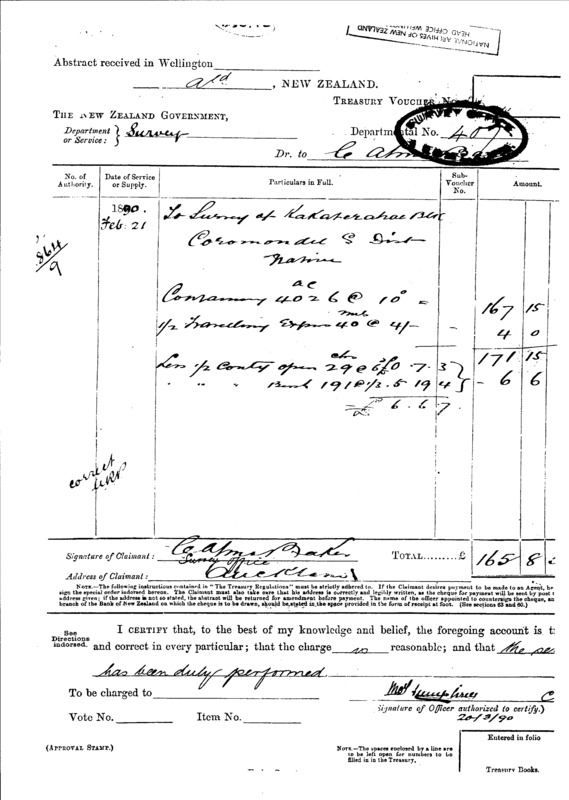 NATIONAL ARCHIVES OF NEW ZEALAND
HEAD OFFICE WELLINGTON
Abstract received in Wellington
, NEW ZEALAND.
TREASURY VOUCHER No.
THE NEW ZEALAND GOVERNMENT,
Department or Service: } Survey
Departmental No. 407
SURVEY OFFICE
Dr. to C Alma Baker
No. of Authority. Date of Service or Supply. Particulars in Full. Sub-Voucher No. Amount.
1890. To Survey of Kakatarahae Blk
Feb. 21
Coromandel S Dist
Native
864/9
ac
Containing 4026 @ 10d = 167 15
mls
1/2 Travelling Expens 40 @ 4/- - 4 0
171 15
chs
Less 1/2 Conty open 29 @ 5/- 0 . 7 . 3 }
" " " Bush 191 @ 5 19 4 } - 6 6
£ 6 . 6 . 7.
correct
Signature of Claimant: C Alma Baker TOTAL.........£ 165 8
Survey Office
Address of Claimant: Auckland
NOTE.—The following instructions contained in "The Treasury Regulations" must be strictly adhered to. If the Claimant desires payment to be made to an Agent, he
sign the special order indorsed hereon. The Claimant must also take care that his address is correctly and legibly written, as the cheque for payment will be sent by post t
address given; if the address is not so stated, the abstract will be returned for amendment before payment. The name of the officer appointed to countersign the cheque, an
branch of the Bank of New Zealand on which the cheque is to be drawn, should be stated in the space provided in the form of receipt at foot. (See sections 63 and 60.)
See Directions indorsed.
I CERTIFY that, to the best of my knowledge and belief, the foregoing account is t
and correct in every particular; that the charge is reasonable; and that the ser
has been duly performed
To be charged to
Signature of Officer authorized to certify.)
20/3/90
Vote No. Item No.
Entered in folio
(APPROVAL STAMP.)
NOTE.—The spaces enclosed by a line are
to be left open for numbers to be
filled in in the Treasury.
Treasury Books.